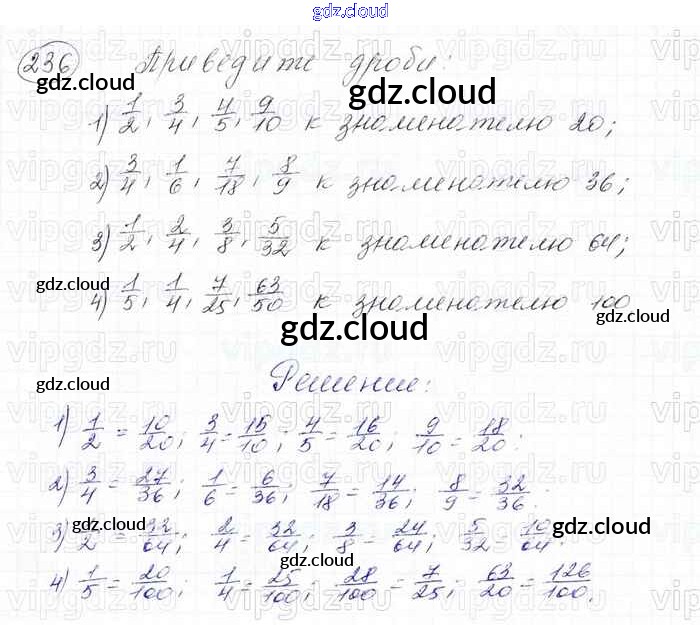 gdz.cloud
236 Приведите дроби:
gdz.cloud gdz.cloud
1) 1/2, 3/4, 4/5, 9/10 к знаменателю 20;
2) 3/4, 1/6, 7/18, 8/9 к знаменателю 36;
3) 1/2, 2/4, 3/8, 5/32 к знаменателю 64;
gdz.cloud
4) 1/5, 1/4, 7/25, 63/50 к знаменателю 100
gdz.cloud
gdz.cloud
gdz.cloud Решение:
1) 1/2 = 10/20; 3/4 = 15/10; 4/5 = 16/20; 9/10 = 18/20;
2) 3/4 = 27/36; 1/6 = 6/36; 7/18 = 14/36; 8/9 = 32/36.
gdz.cloud gdz.cloud
3) /2 = 32/64; 2/4 = 32/64; 3/8 = 24/64; 5/32 = 10/64.
gdz.cloud
4) 1/5 = 20/100; 1/4 = 25/100; 28/100 = 7/25; 63/20 = 126/100.